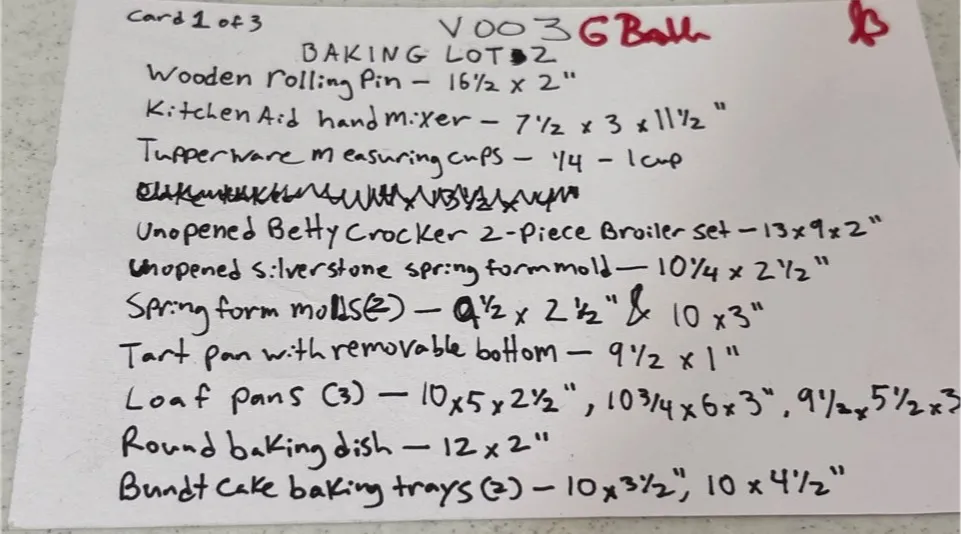 Card 1 of 3
V003 G Ball
BAKING LOT 2
Wooden rolling Pin – 16 1/2 x 2"
KitchenAid hand mixer – 7 1/2 x 3 x 11 1/2"
Tupperware measuring cups – 1/4 – 1 cup
Unopened Betty Crocker 2-Piece Broiler set – 13x9x2"
Unopened silverstone spring form mold – 10 1/4 x 2 1/2"
Spring form molds (2) – 9 1/2 x 2 1/2" & 10 x 3"
Tart pan with removable bottom – 9 1/2 x 1"
Loaf pans (3) – 10x5x2 1/2", 10 3/4 x 6 x 3", 9 1/2 x 5 1/2 x 3
Round baking dish – 12 x 2"
Bundt cake baking trays (2) – 10 x 3 1/2", 10 x 4 1/2"